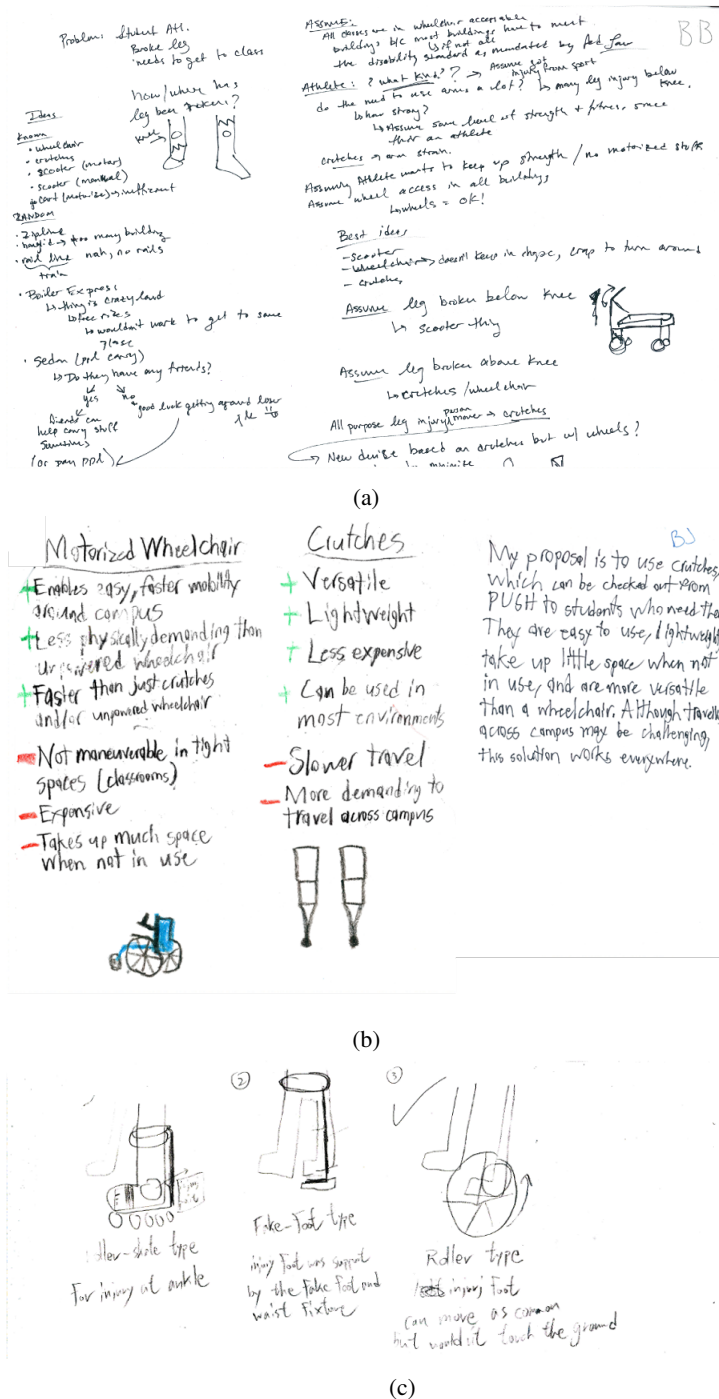 Problem: Student Atl.
Broke leg
needs to get to class
how/where has
leg been broken?
knee
Ideas
Known
• wheelchair
• crutches
• scooter (motor)
• scooter (manual)
cart (motorize) → inefficient
RANDOM
• Zipline
too many building
• rail line nah, no rails
train
• Boiler Express
↳ thing is crazy loud
↳ free rides
↳ wouldn't work to get to same
place
• Sedan (ppl carry)
↳ Do they have any friends?
yes no
friends can
help carry stuff
Sometimes
good luck getting around loser
(or pay ppl)
Assume:
All classes are in wheelchair accessable
buildings b/c most buildings have to meet
↳ if not all
the disability standard as mandated by fed law
BB
Athlete: ? what kind? ? → Assume got
injury from sport
do the need to use arms a lot? ↳ many leg injury below
knee.
↳ how strong?
↳ Assume some level of strength & fitness, since
their an athlete
crutches → arm strain.
Assuming Athlete wants to keep up strength / no motorized stuff
Assume wheel access in all buildings
↳ wheels = OK!
Best ideas
- scooter
- wheelchair → doesn't keep in shape, crap to turn around
- crutches
Assume leg broken below knee
↳ scooter thing
Assume leg broken above knee
↳ crutches / wheelchair
All purpose leg injury person mover → crutches
New devise based on crutches but w/ wheels?
(a)
Motorized Wheelchair
+ Enables easy, faster mobility
around campus
+ Less physically demanding than
unpowered wheelchair
+ Faster than just crutches
and/or unpowered wheelchair
- Not maneuverable in tight
spaces (classrooms)
- Expensive
- Takes up much space
when not in use
Crutches
+ Versatile
+ Lightweight
+ Less expensive
+ Can be used in
most environments
- Slower travel
- More demanding to
travel across campus
BJ
My proposal is to use crutches,
which can be checked out from
PUSH to students who need the
They are easy to use, lightweight
take up little space when not
in use, and are more versatile
than a wheelchair. Although travel
across campus may be challenging,
this solution works everywhere.
(b)
ller-skate type
For injury at ankle
②
Fake-Foot type
injury Foot was support
by the Fake Foot and
waist Fixture
③
Roller type
injury Foot
can move as common
but wouldn't touch the ground
(c)